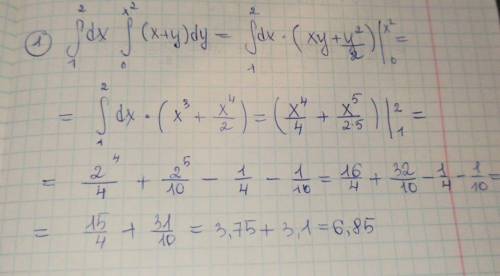 ① ∫₁² dx ∫₀^{x²} (x+y)dy = ∫₁² dx · (xy + y²/2)|₀^{x²} =
= ∫₁² dx · (x³ + x⁴/2) = (x⁴/4 + x⁵/2·5)|₁² =
= 2⁴/4 + 2⁵/10 − 1/4 − 1/10 = 16/4 + 32/10 − 1/4 − 1/10 =
= 15/4 + 31/10 = 3,75 + 3,1 = 6,85